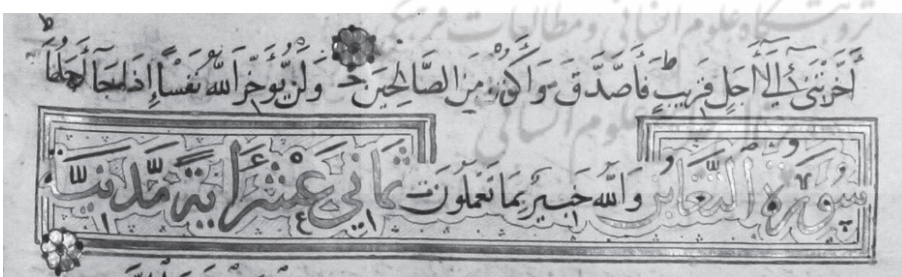 پژوهشگاه علوم انسانی و مطالعات فرهنگی
أَخَّرْتَنِي إِلَى أَجَلٍ قَرِيبٍ فَأَصَّدَّقَ وَأَكُونَ مِنَ الصَّالِحِينَ وَلَنْ يُؤَخِّرَ اللَّهُ نَفْسًا إِذَا جَاءَ أَجَلُهَا
علوم انسانی
سُورَةُ التَّغَابُنِ وَاللَّهُ خَبِيرٌ بِمَا تَعْمَلُونَ ثَمَانِي عَشْرَ آيَةً مَدَنِيَّة